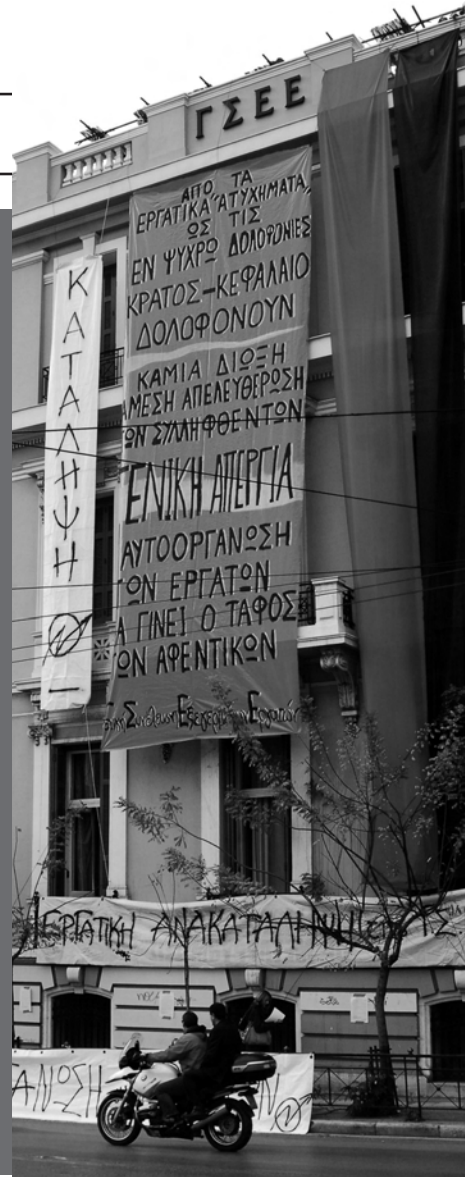 ΓΣΕΕ
ΚΑΤΑΛΗΨΗ
ΑΠΟ ΤΑ
ΕΡΓΑΤΙΚΑ "ΑΤΥΧΗΜΑΤΑ"
ΩΣ ΤΙΣ
ΕΝ ΨΥΧΡΩ ΔΟΛΟΦΟΝΙΕΣ
ΚΡΑΤΟΣ-ΚΕΦΑΛΑΙΟ
ΔΟΛΟΦΟΝΟΥΝ
ΚΑΜΙΑ ΔΙΩΞΗ
ΑΜΕΣΗ ΑΠΕΛΕΥΘΕΡΩΣΗ
ΩΝ ΣΥΛΛΗΦΘΕΝΤΩΝ
ΕΝΙΚΗ ΑΠΕΡΓΙΑ
ΑΥΤΟΟΡΓΑΝΩΣΗ
ΩΝ ΕΡΓΑΤΩΝ
Α ΓΙΝΕΙ Ο ΤΑΦΟΣ
ΩΝ ΑΦΕΝΤΙΚΩΝ
Συνέλευση Εξεγερμένων Εργατών
ΕΡΓΑΤΙΚΗ ΑΝΑΚΑΤΑΛΗΨΗ
ΑΝΩΣΗ